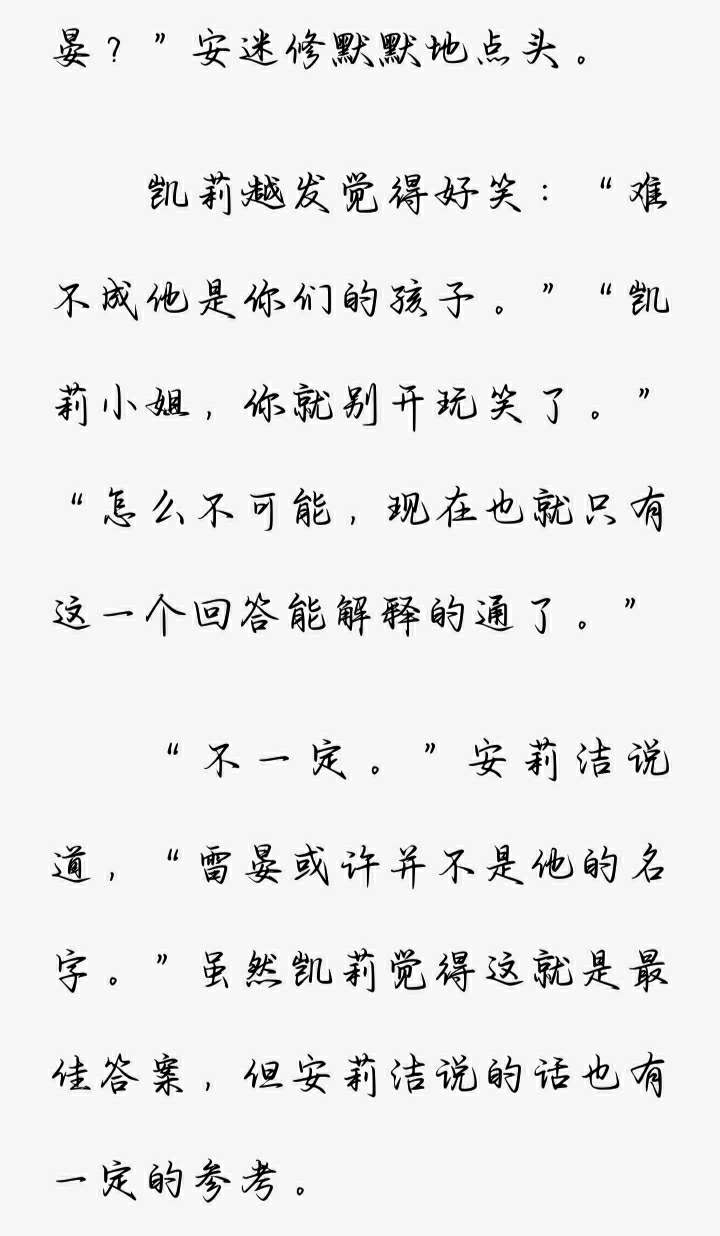 晏？”安迷修默默地点头。
凯莉越发觉得好笑：“难
不成他是你们的孩子。”“凯
莉小姐，你就别开玩笑了。”
“怎么不可能，现在也就只有
这一个回答能解释的通了。”
“不一定。”安莉洁说
道，“雷晏或许并不是他的名
字。”虽然凯莉觉得这就是最
佳答案，但安莉洁说的话也有
一定的参考。